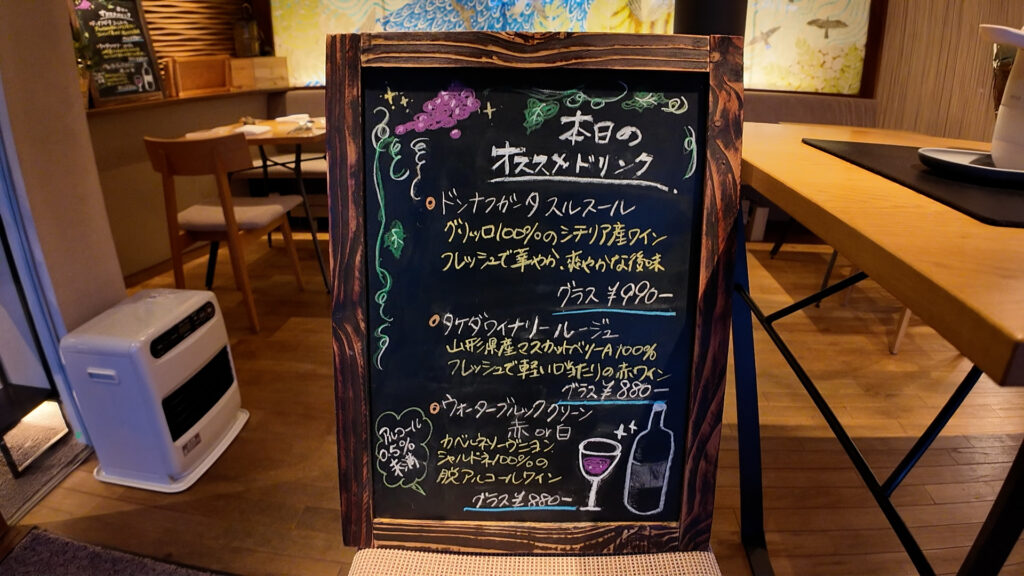 本日の
オススメドリンク
ドンナフガータ スルスール
グリッロ100%のシチリア産ワイン
フレッシュで華やか、爽やかな後味
グラス ¥990-
タケダワイナリー ルージュ
山形県産マスカットベリーA100%
フレッシュで軽い口当たりの赤ワイン
グラス ¥880-
ウォーターブルック クリーン
赤 or 白
アルコール
0.5%
未満
カベルネソーヴニヨン
シャルドネ100%の
脱アルコールワイン
グラス ¥880-